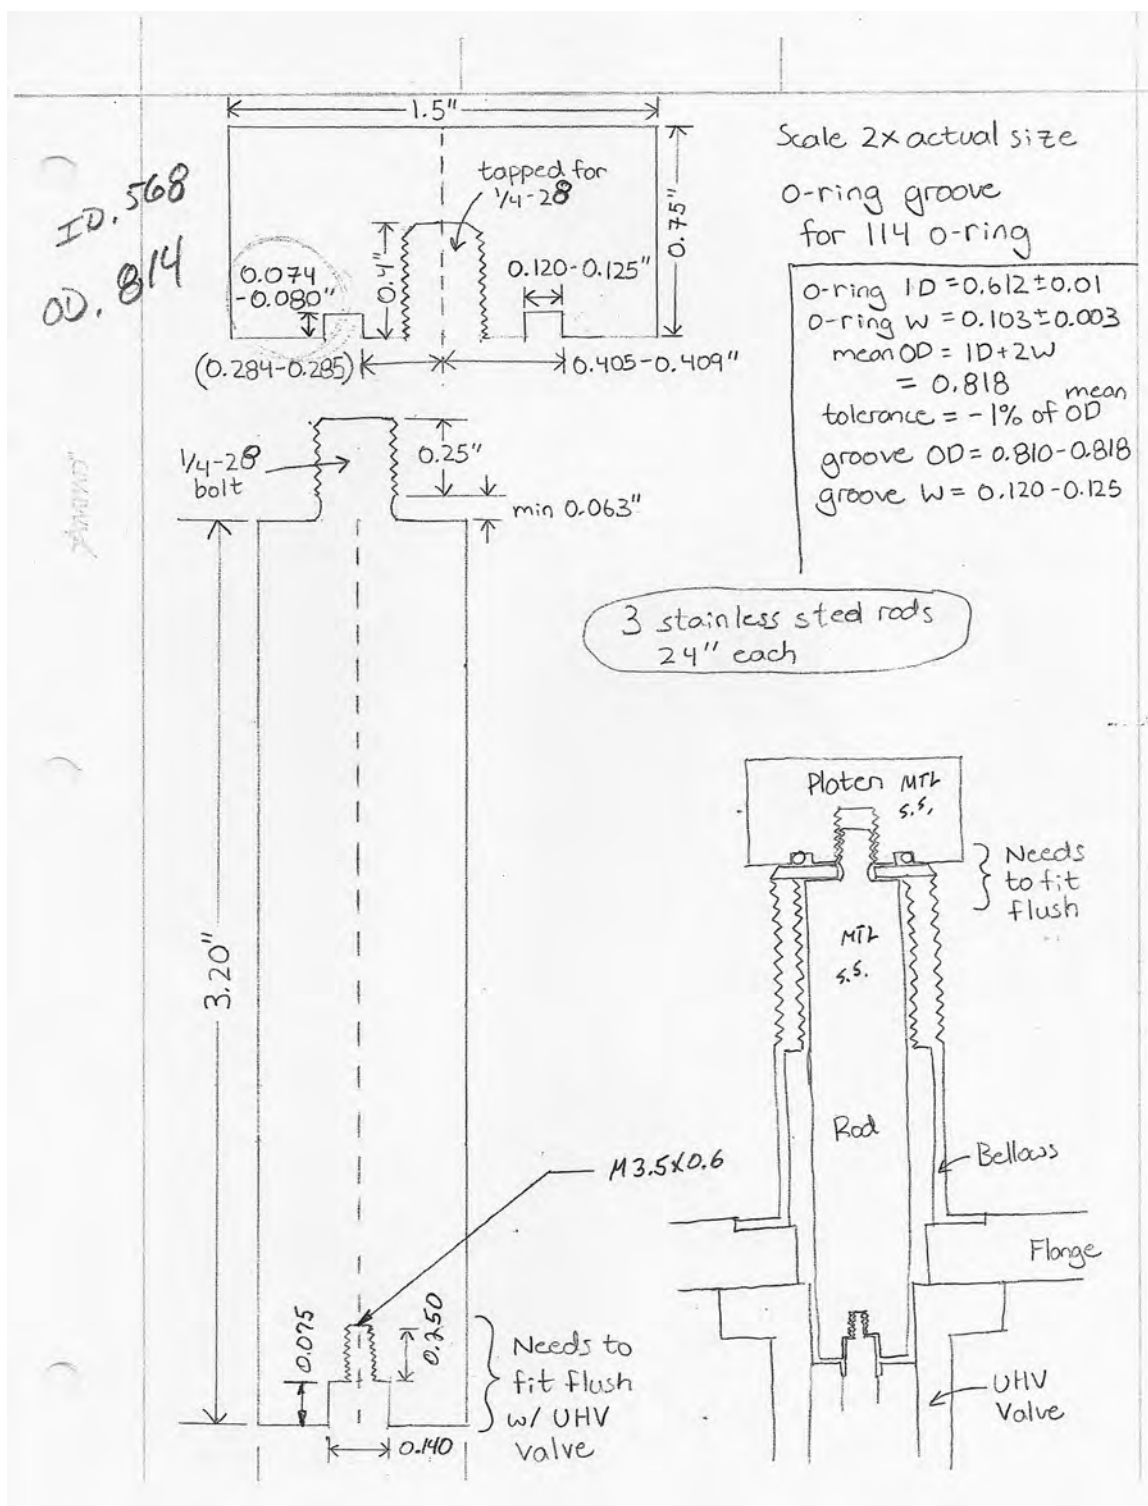 1.5"
tapped for
1/4-28
0.75"
0.4"
0.074
-0.080"
0.120-0.125"
(0.284-0.285)
0.405-0.409"
ID.568
OD.814
Scale 2x actual size
O-ring groove
for 114 o-ring
o-ring ID=0.612±0.01
o-ring W=0.103±0.003
mean OD = ID+2W
= 0.818
tolerance = -1% of mean OD
groove OD=0.810-0.818
groove W=0.120-0.125
1/4-28
bolt
0.25"
min 0.063"
3 stainless steel rods
24" each
3.20"
M3.5X0.6
0.075
0.250
0.140
Needs to
fit flush
w/ UHV
valve
Platen MTL
S.S.
Needs
to fit
flush
MTL
S.S.
Rod
Bellows
Flange
UHV
Valve